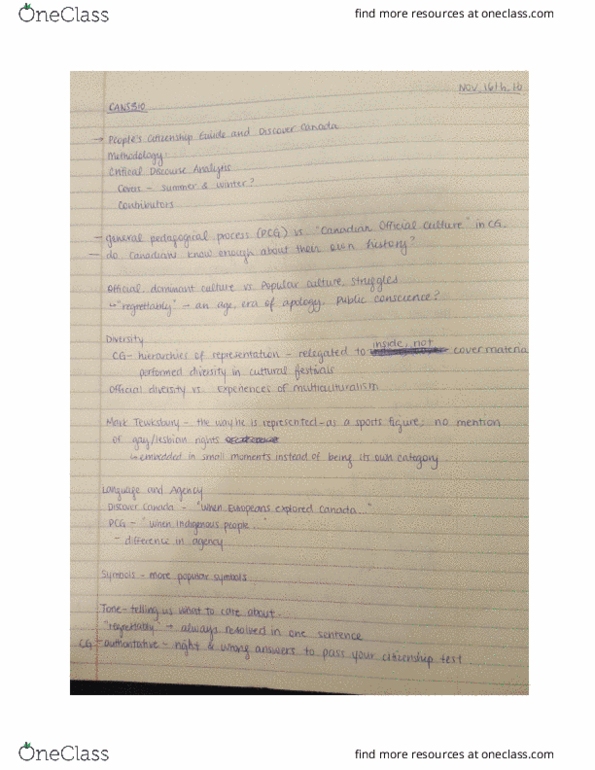 OneClass
find more resources at oneclass.com
NOV. 16th, 16
CANS310
→ People's Citizenship Guide and Discover Canada
Methodology:
Critical Discourse Analysis
Cover - summer & winter?
Contributors
- general pedagogical process (PCG) vs. "Canadian Official Culture" in CG.
- do Canadians know enough about their own history?
Official, dominant culture vs. Popular culture, struggles
↳ "regrettably" - an age, era of apology. Public conscience?
Diversity
inside, not
CG - hierarchies of representation - relegated to cover material
performed diversity in cultural festivals
Official diversity vs. experiences of multiculturalism
Mark Tewksbury - the way he is represented - as a sports figure; no mention
of gay/lesbian rights
↳ embedded in small moments instead of being its own category
Language and Agency
Discover Canada - "when Europeans explored Canada..."
PCG - "when Indigenous people..."
- difference in agency
Symbols - more popular symbols
Tone - telling us what to care about.
"regrettably" → always resolved in one sentence
CG - authoritative - right & wrong answers to pass your citizenship test
OneClass
find more resources at oneclass.com